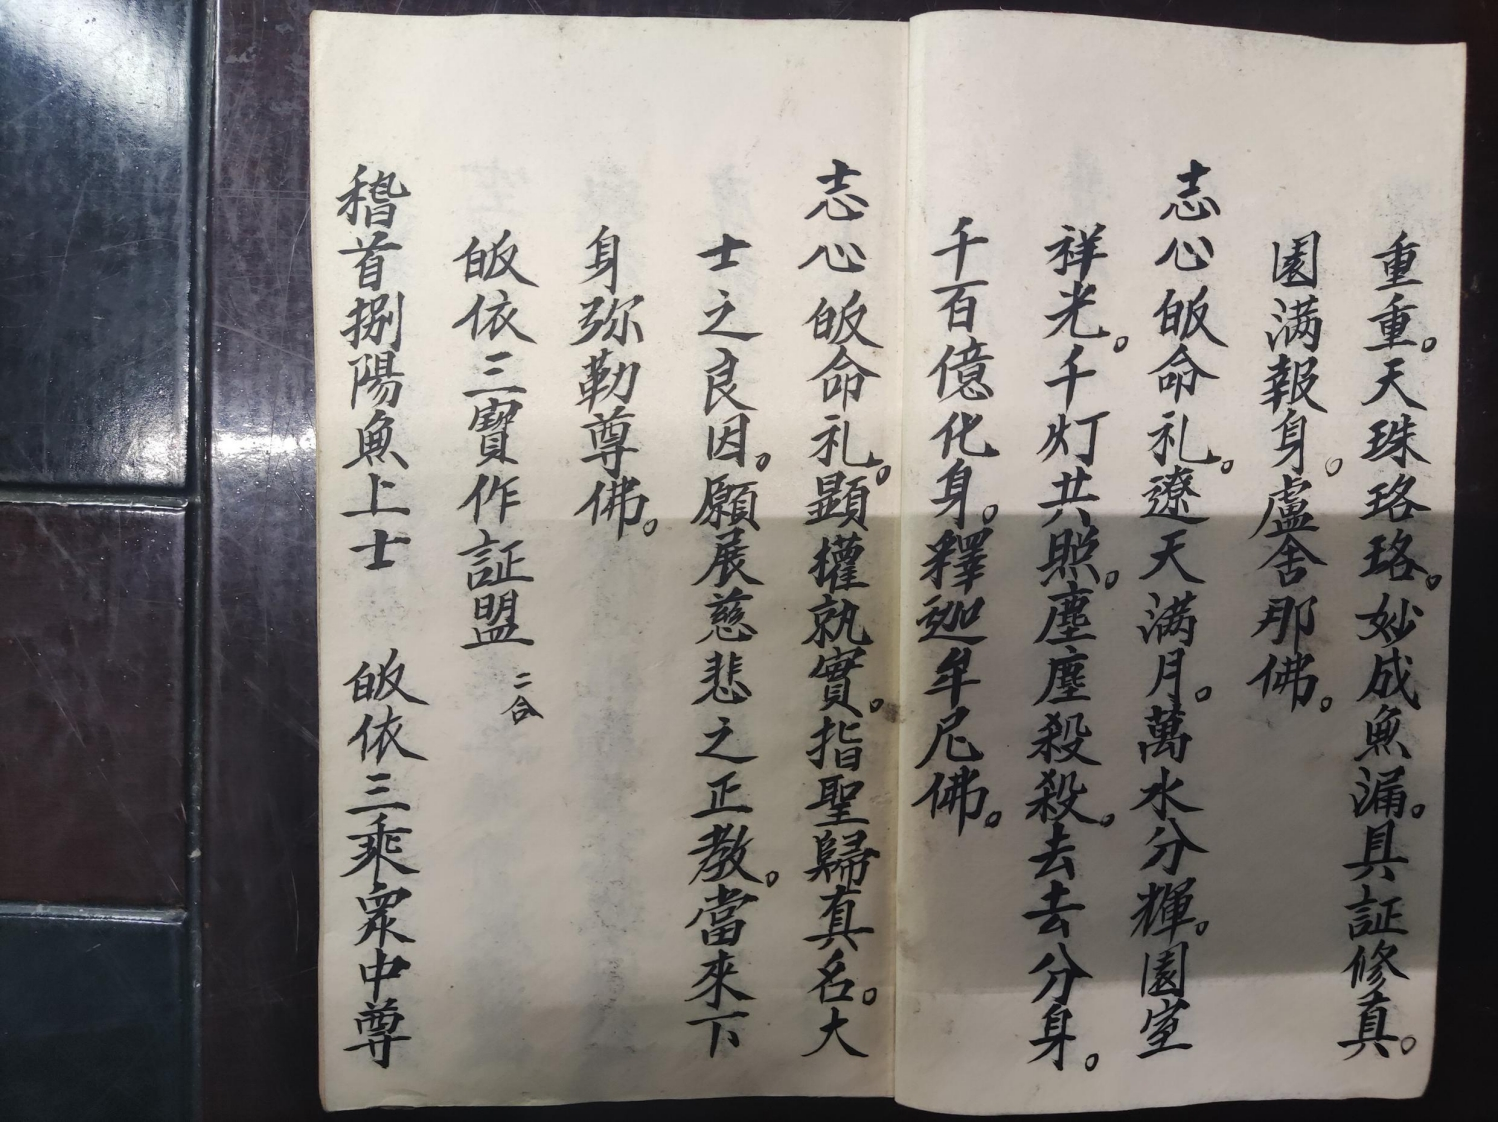 重重。天珠珞珞。妙成魚漏。具証修真。
圎满報身。盧舍那佛。
志心皈命礼。遼天满月。萬水分輝。圎室
祥光。千灯共照。塵塵殺殺。去去分身。
千百億化身。釋迦牟尼佛。
志心皈命礼。顕權執實。指聖歸真名。大
士之良因。願展慈悲之正教。當來下
身弥勒尊佛。
皈依三寶作証盟 二合
稽首捌陽魚上士 皈依三乘眾中尊